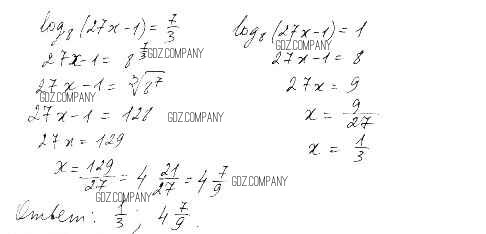 log₈(27x-1) = 7/3
27x-1 = 8^(7/3)
GDZ.COMPANY
27x-1 = ∛8⁷
GDZ.COMPANY
27x-1 = 128
GDZ.COMPANY
27x = 129
x = 129/27 = 4 21/27 = 4 7/9
GDZ.COMPANY
GDZ.COMPANY
log₈(27x-1) = 1
GDZ.COMPANY
27x-1 = 8
27x = 9
x = 9/27
x = 1/3
Ответ: 1/3; 4 7/9.